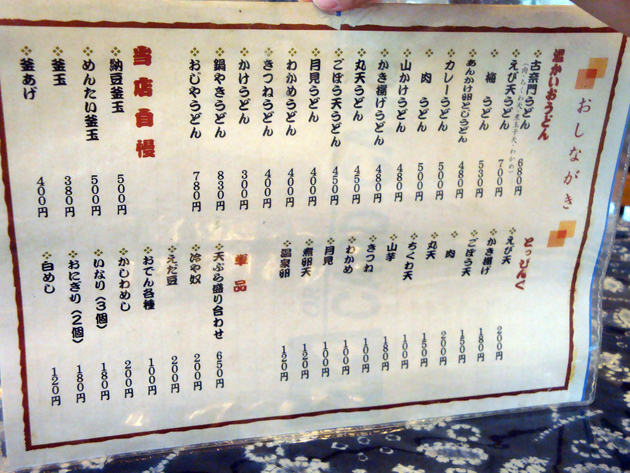 おしながき
温かいおうどん
古奈門うどん 680円
(肉・ちくわ天・煮玉子天・わかめ)
えび天うどん 700円
梅うどん 530円
あんかけ卵とじうどん 480円
カレーうどん 500円
肉うどん 500円
山かけうどん 480円
かき揚げうどん 480円
丸天うどん 450円
ごぼう天うどん 450円
月見うどん 400円
わかめうどん 400円
きつねうどん 400円
かけうどん 300円
鍋やきうどん 830円
おじやうどん 780円
当店自慢
納豆釜玉 500円
めんたい釜玉 500円
釜玉 380円
釜あげ 400円
とっぴんぐ
えび天 200円
かき揚げ 180円
ごぼう天 150円
肉 200円
丸天 150円
ちくわ天 100円
山芋 180円
きつね 100円
わかめ 100円
月見 100円
煮卵天 120円
温泉卵 120円
単品
天ぷら盛り合わせ 650円
冷や奴 200円
えだ豆 200円
おでん各種 100円
かしわめし 200円
いなり(3個) 180円
おにぎり(2個) 180円
白めし 120円